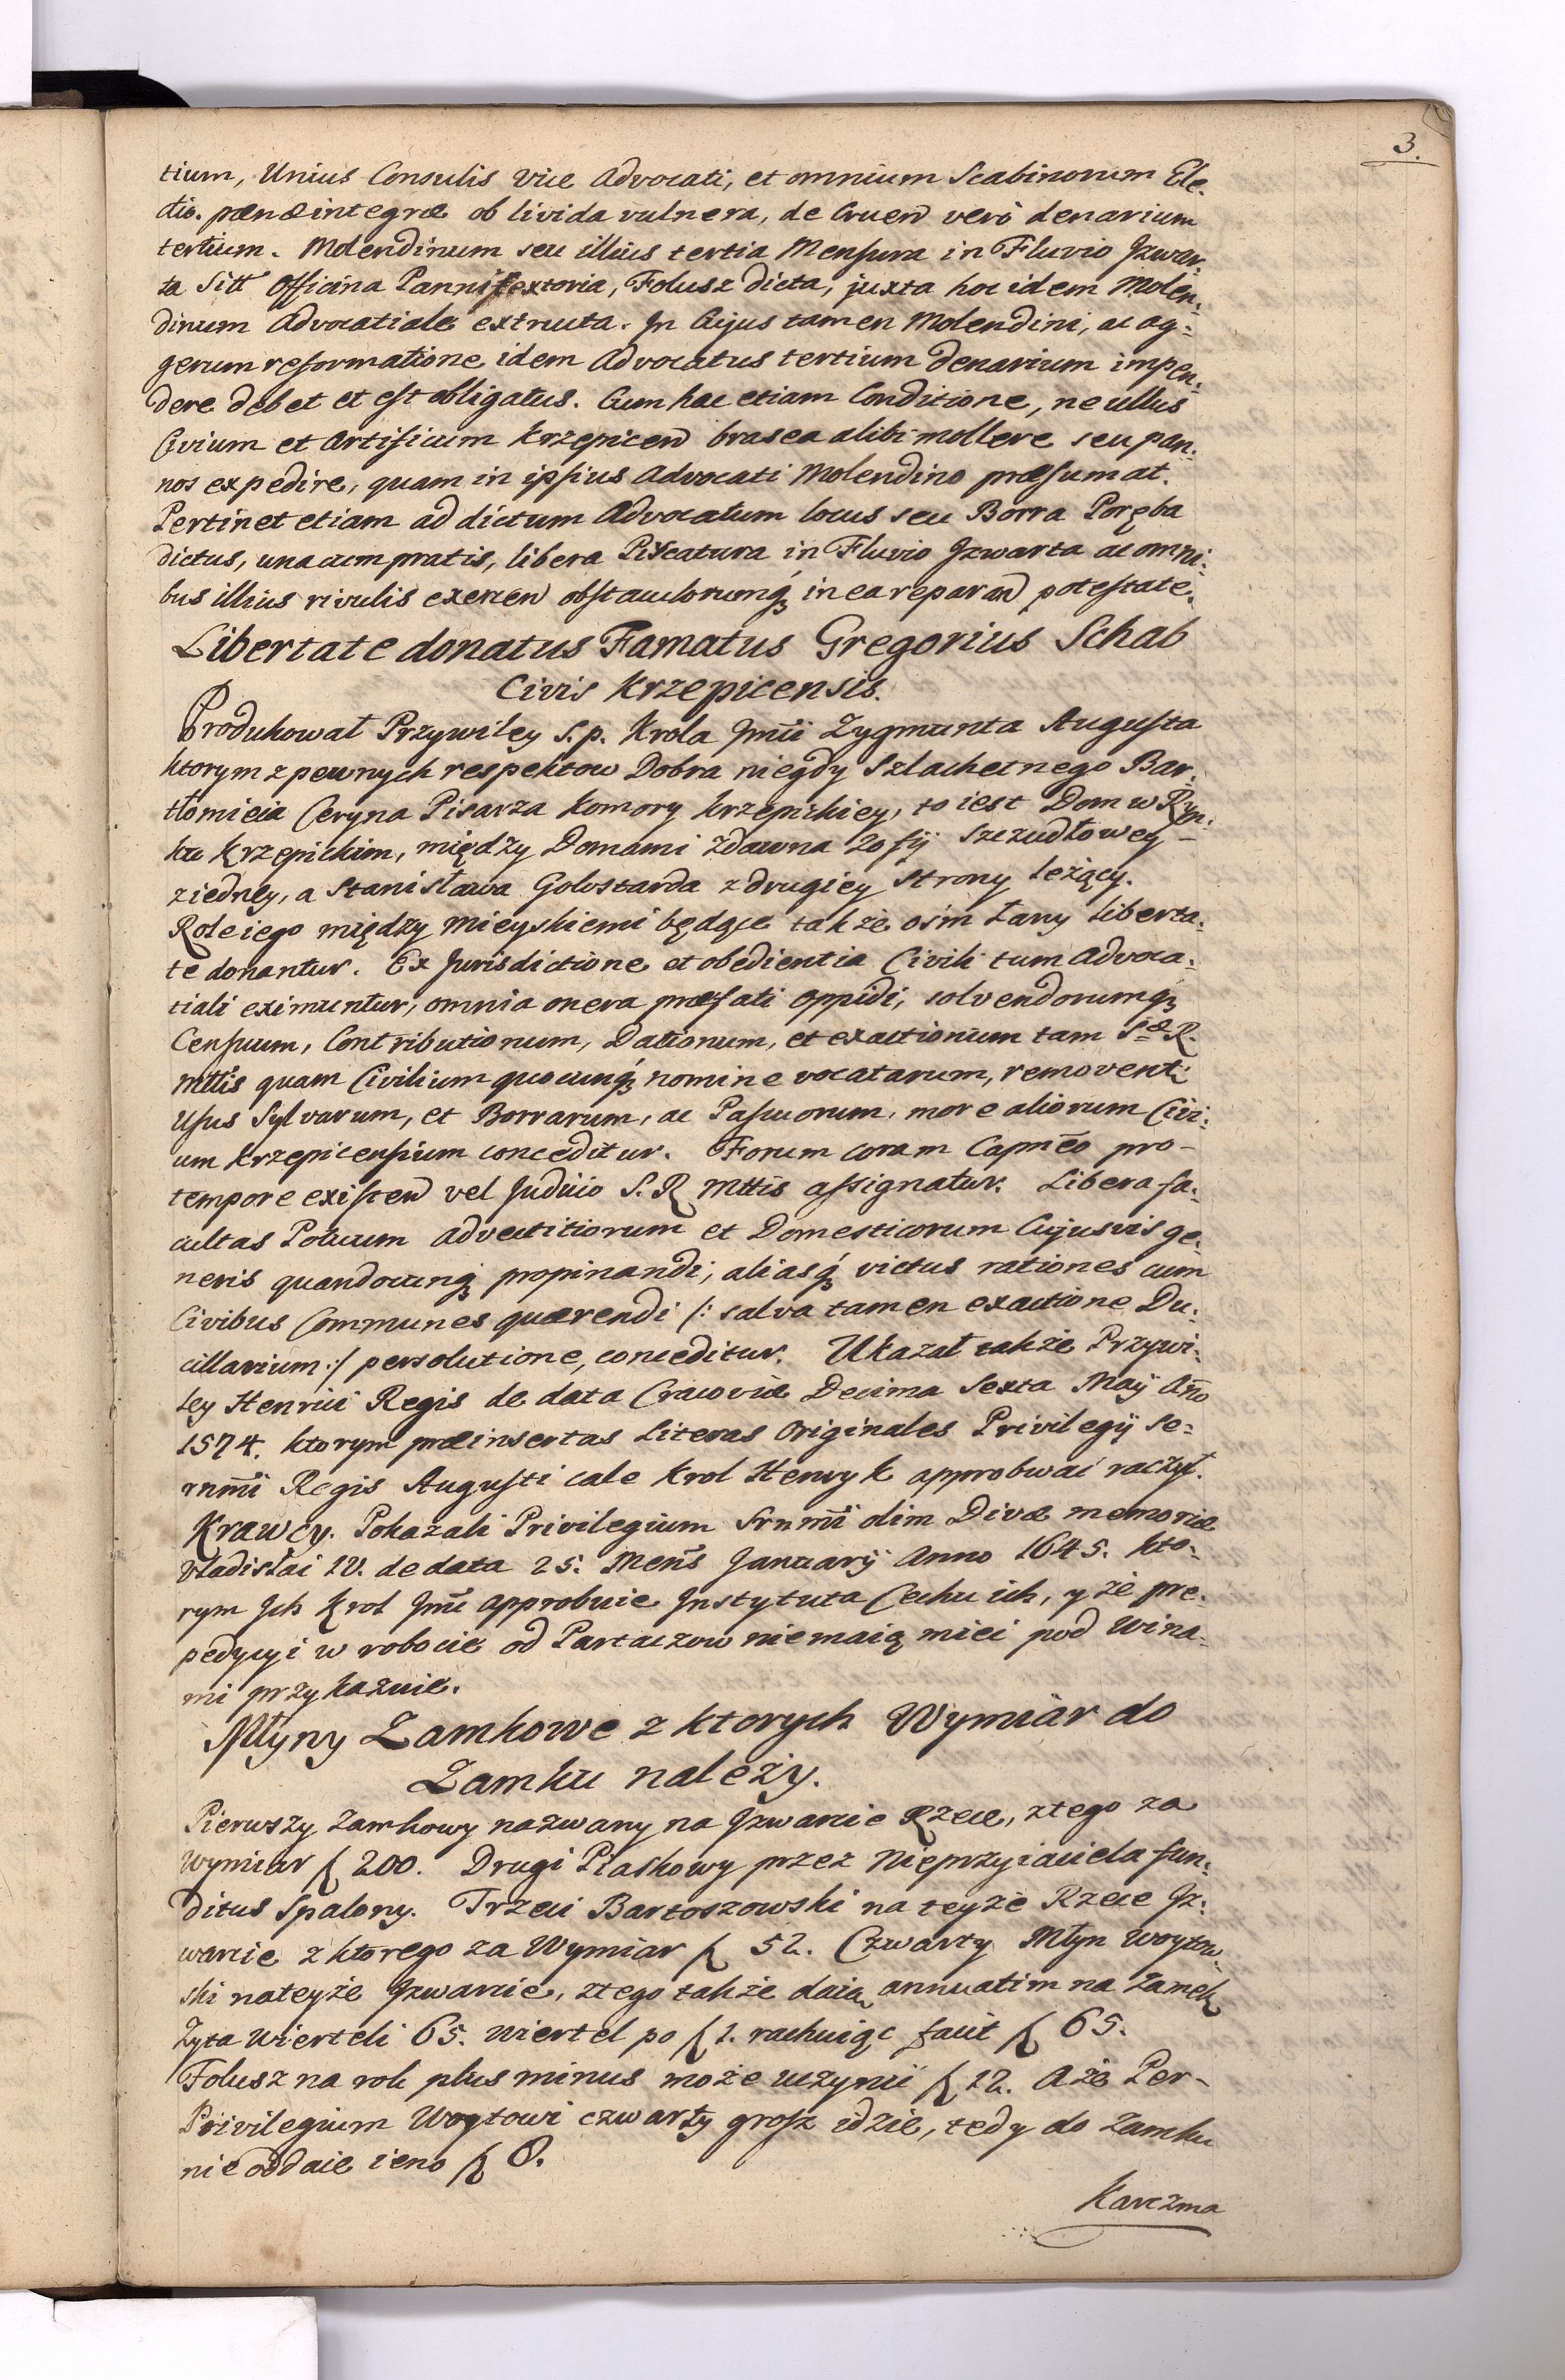 3.
tium, Unius Consulis Vice Advocati, et omnium Scabinorum Ele-
ctio. pænæ integræ ob livida vulnera, de Cruen verò denarium
tertium. Molendinum seu illius tertia Mensura in Fluvio Izwar-
ta Sitt Officina Pannitextoria, Folusz dicta, juxta hoc idem Molen-
dinum Advocatiale extructa. In Cujus tamen Molendini, ac ag-
gerum reformatione idem Advocatus tertium denarium impen-
dere debet et est obligatus. Cum hac etiam Conditione, ne ullus
Civium et Artificum Krzepicen brasea alibi mollere seu pan-
nos expedire, quam in ipsius Advocati Molendino præsumat.
Pertinet etiam ad dictum Advocatum locus seu Borra Poręba
dictus, una cum pratis, libera Piscatura in Fluvio Izwarta ac omni-
bus illius rivulis exercen obstaculorumq́ in ea reparan potestate.
Libertate donatus Famatus Gregorius Schab
Civis Krzepicensis.
Produkował Przywiley S. p. Krola Jmći Zygmunta Augusta
ktorym z pewnych respektow Dobra niegdy Szlachetnego Bar-
tłomieia Ceryna Pisarza Komory Krzepickiey, to iest Dom w Ryn-
ku Krzepickim, między Domami zdawna Zofij Szczudłowey
z iedney, a Stanisława Golostarda z drugiey strony leżący.
Role iego między mieyskiemi będące także ośm Łany liberta-
te donantur. Ex Jurisdictione et obedientia Civili tum Advoca-
tiali eximuntur, omnia onera præfati oppidi, solvendorumq́
Censuum, Contributionum, Dationum, et exactionum tam Sæ R.
Mttis quam Civilium quocunq́ nomine vocatarum, removent:
Usus Sylvarum, et Borrarum, ac Pascuorum, more aliorum Civi-
um Krzepicensium conceditur. Forum coram Capnēo pro-
tempore existen vel Judicio S. R Mttis assignatur. Libera fa-
cultas Potuum advectitiorum et Domesticorum Cujusvis ge-
neris quandocunq́ propinandi, aliasq́ victus rationes cum
Civibus Communes quærendi /: salva tamen exactione Du-
cillarium :/ persolutione, conceditur. Ukazał także Przywi-
ley Henrici Regis de data Cracoviæ Decima Sexta Maij Año
1574. ktorym præinsertas Literas Originales Privilegij Se-
rnm̃i Regis Augusti cale Krol Henryk approbwać raczył.
Krawcy. Pokazali Privilegium Srnm̃i olim Divæ memoriæ
Vladisłai IV. de data 25. Mens Januarij Anno 1645. kto-
rym Ich Krol Jmć approbuie Instytuta Cechu ich, y że pre-
pedycyi w robocie od Partaczow nie maią mieć pod Wina-
mi przykazuie.
Młyny Zamkowe z ktorych Wymiar do
Zamku należy.
Pierwszy Zamkowy nazwany na Izwarcie Rzece, z tego za
Wymiar f 200. Drugi Piaskowy przez Nieprzyiaciela fun-
ditus Spalony. Trzeci Bartoszowski na teyże Rzece Iz-
warcie z ktorego za Wymiar f 52. Czwarty Młyn Woytow-
ski na teyże Izwarcie, z tego także daią annuatim na Zamek
Żyta Wierteli 65. Wiertel po f 1. rachuiąc facit f 65.
Folusz na rok plus minus może uczynić f 12. A że Per-
Privilegium Woytowi czwarty grosz idzie, tedy do Zamku
nie oddaie ieno f 8.
Karczma